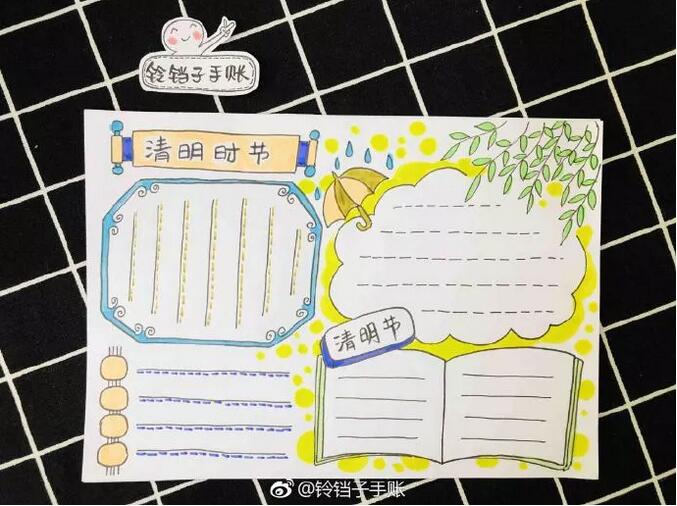 铃铛子手账
清明时节
清明节
@铃铛子手账